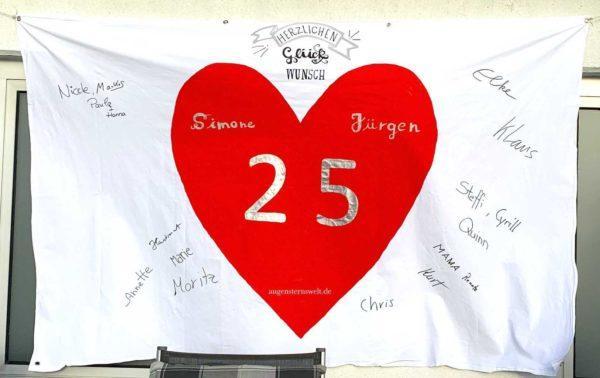 HERZLICHEN
Glück
WUNSCH
Simone Jürgen
25
augensternswelt.de
Nicole, Markus
Paula
Hanna
Elke
Klaus
Steffi, Cyrill
Quinn
MAMA Renate
Kurt
Chris
Hartmut
Annette Marie
Moritz